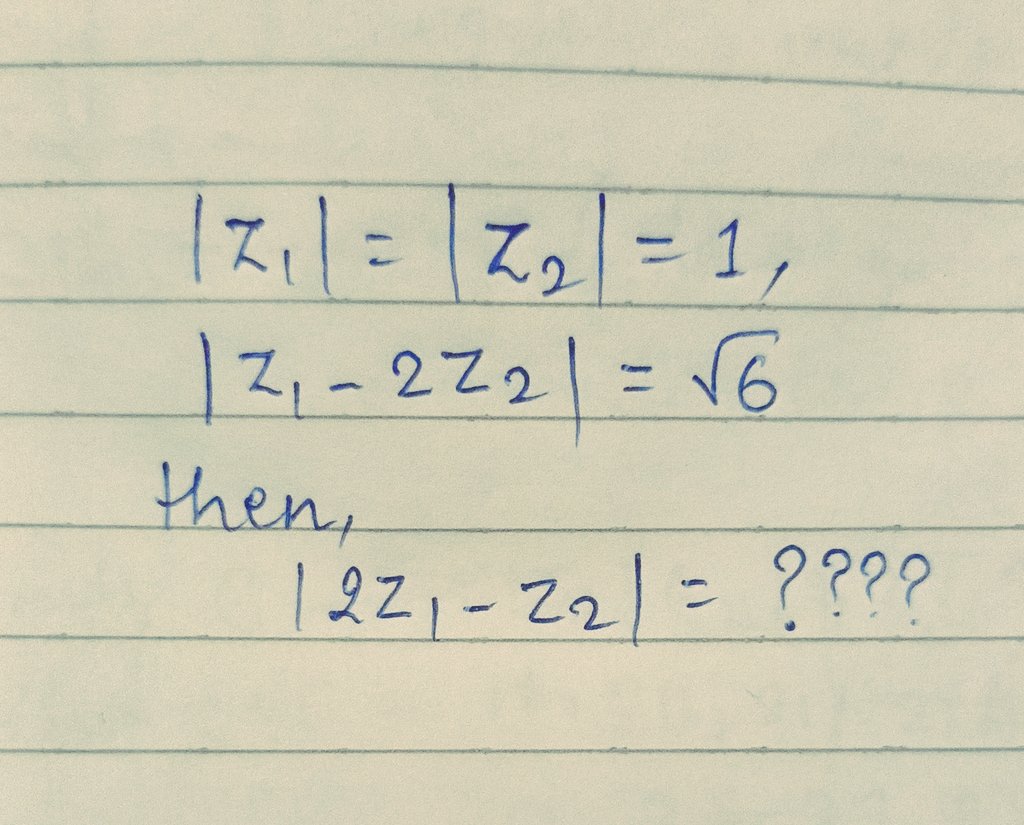 |z₁| = |z₂| = 1,
|z₁ - 2z₂| = √6
then,
|2z₁ - z₂| = ????